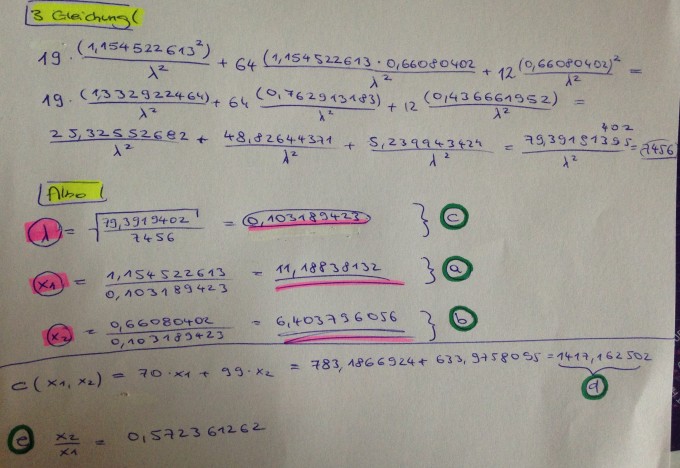 3 Gleichung(
19 · (1,154522613²)/λ² + 64 (1,154522613 · 0,66080402)/λ² + 12 (0,66080402)²/λ² =
19 · (1,332922464)/λ² + 64 (0,762913183)/λ² + 12 (0,436661952)/λ² =
25,32552682/λ² + 48,82644371/λ² + 5,239943424/λ² = 79,39191395/λ² = 7456
402
Also (
λ = √79,3919402/7456 = 0,103189423 } c
x1 = 1,154522613/0,103189423 = 11,18838132 } a
x2 = 0,66080402/0,103189423 = 6,403796056 } b
c (x1, x2) = 70 · x1 + 99 · x2 = 783,1866924 + 633,9758095 = 1417,162502
d
e x2/x1 = 0,572361262